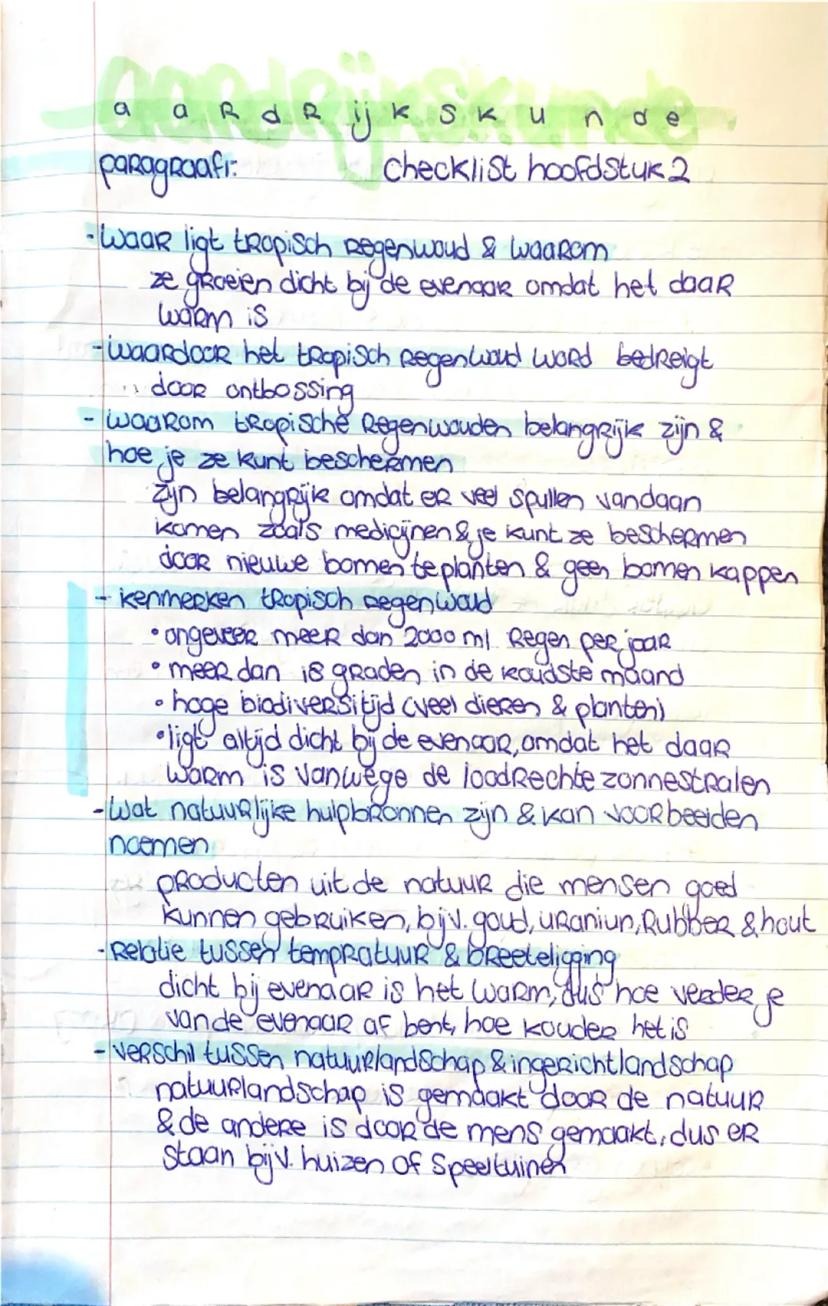 aardrijkskunde
a a R d R ij k s k u n d e
paragraaf1: checklist hoofdstuk 2
- waar ligt tropisch regenwoud & waarom
ze groeien dicht bij de evenaar omdat het daar
warm is
- waardoor het tropisch regenwoud word bedreigt
door ontbossing
- waarom tropische regenwouden belangrijk zijn &
hoe je ze kunt beschermen
zijn belangrijk omdat er veel spullen vandaan
komen zoals medicijnen & je kunt ze beschermen
door nieuwe bomen te planten & geen bomen kappen
- kenmerken tropisch regenwoud
• ongeveer meer dan 2000 ml regen per jaar
• meer dan 18 graden in de koudste maand
• hoge biodiversitijd (veel dieren & planten)
• ligt altijd dicht bij de evenaar, omdat het daar
warm is vanwege de loodrechte zonnestralen
- wat natuurlijke hulpbronnen zijn & kan voorbeelden
noemen
producten uit de natuur die mensen goed
kunnen gebruiken, bijv. goud, uraniun, rubber & hout
- relatie tussen tempratuur & breeteligging
dicht bij evenaar is het warm, dus hoe verder je
van de evenaar af bent, hoe kouder het is
- verschil tussen natuurlandschap & ingericht landschap
natuurlandschap is gemaakt door de natuur
& de andere is door de mens gemaakt, dus er
staan bijv. huizen of speeltuinen